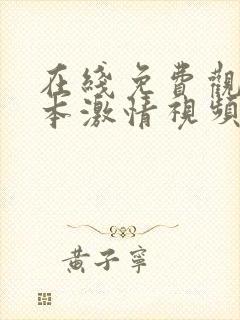 在綫免費觀
本激情視頻
黃子寧